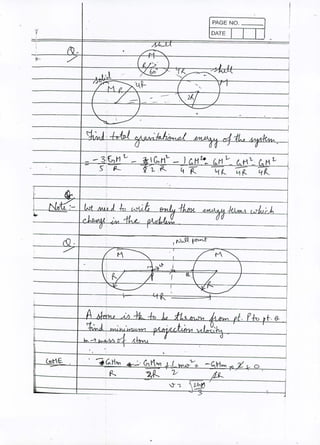 PAGE NO.
DATE
Q.
shell
M
R
60°
4R
shell
solid
4R
M R
2R
Find total gravitational energy of the system.
= - 3 GM² - 1 GM² - 1 GM² - GM² - GM² - GM²
5 R 2 R 4 R 4R 4R 4R
Q.
Note :- We need to write only those energy terms which
change in the problem.
Q.
Null point
M
M
R
R
4R
A stone is to be thrown from pt. P to pt. Q
Find minimum projection velocity.
m → mass of stone
COME
- GMm - GMm + 1 mv² = - GMm × 2 + 0
R 3R 2 2R
v =